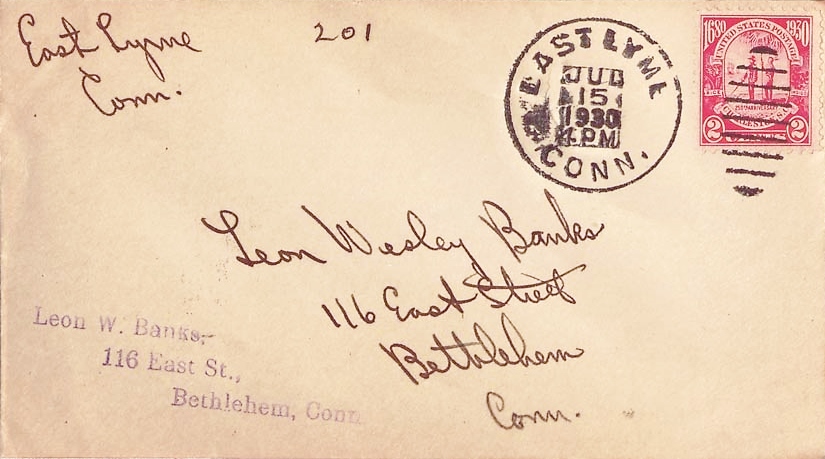 East Lyme
Conn.
201
EAST LYME
JUL
15
1930
4 PM
CONN.
1680 1930
UNITED STATES POSTAGE
2 2
Leon Wesley Banks
116 East Street
Bethlehem
Conn.
Leon W. Banks,
116 East St.,
Bethlehem, Conn